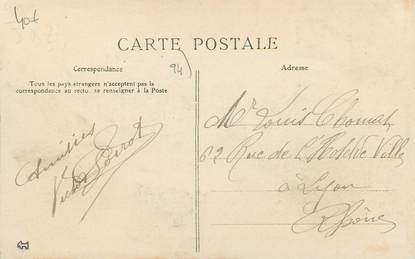 40f
CARTE POSTALE
94
Correspondance
Adresse
Tous les pays étrangers n'acceptent pas la
correspondance au recto, se renseigner à la Poste
Amitiés
Mr Louis
62 Rue de l'Hôtel de Ville
à Lyon
Rhône